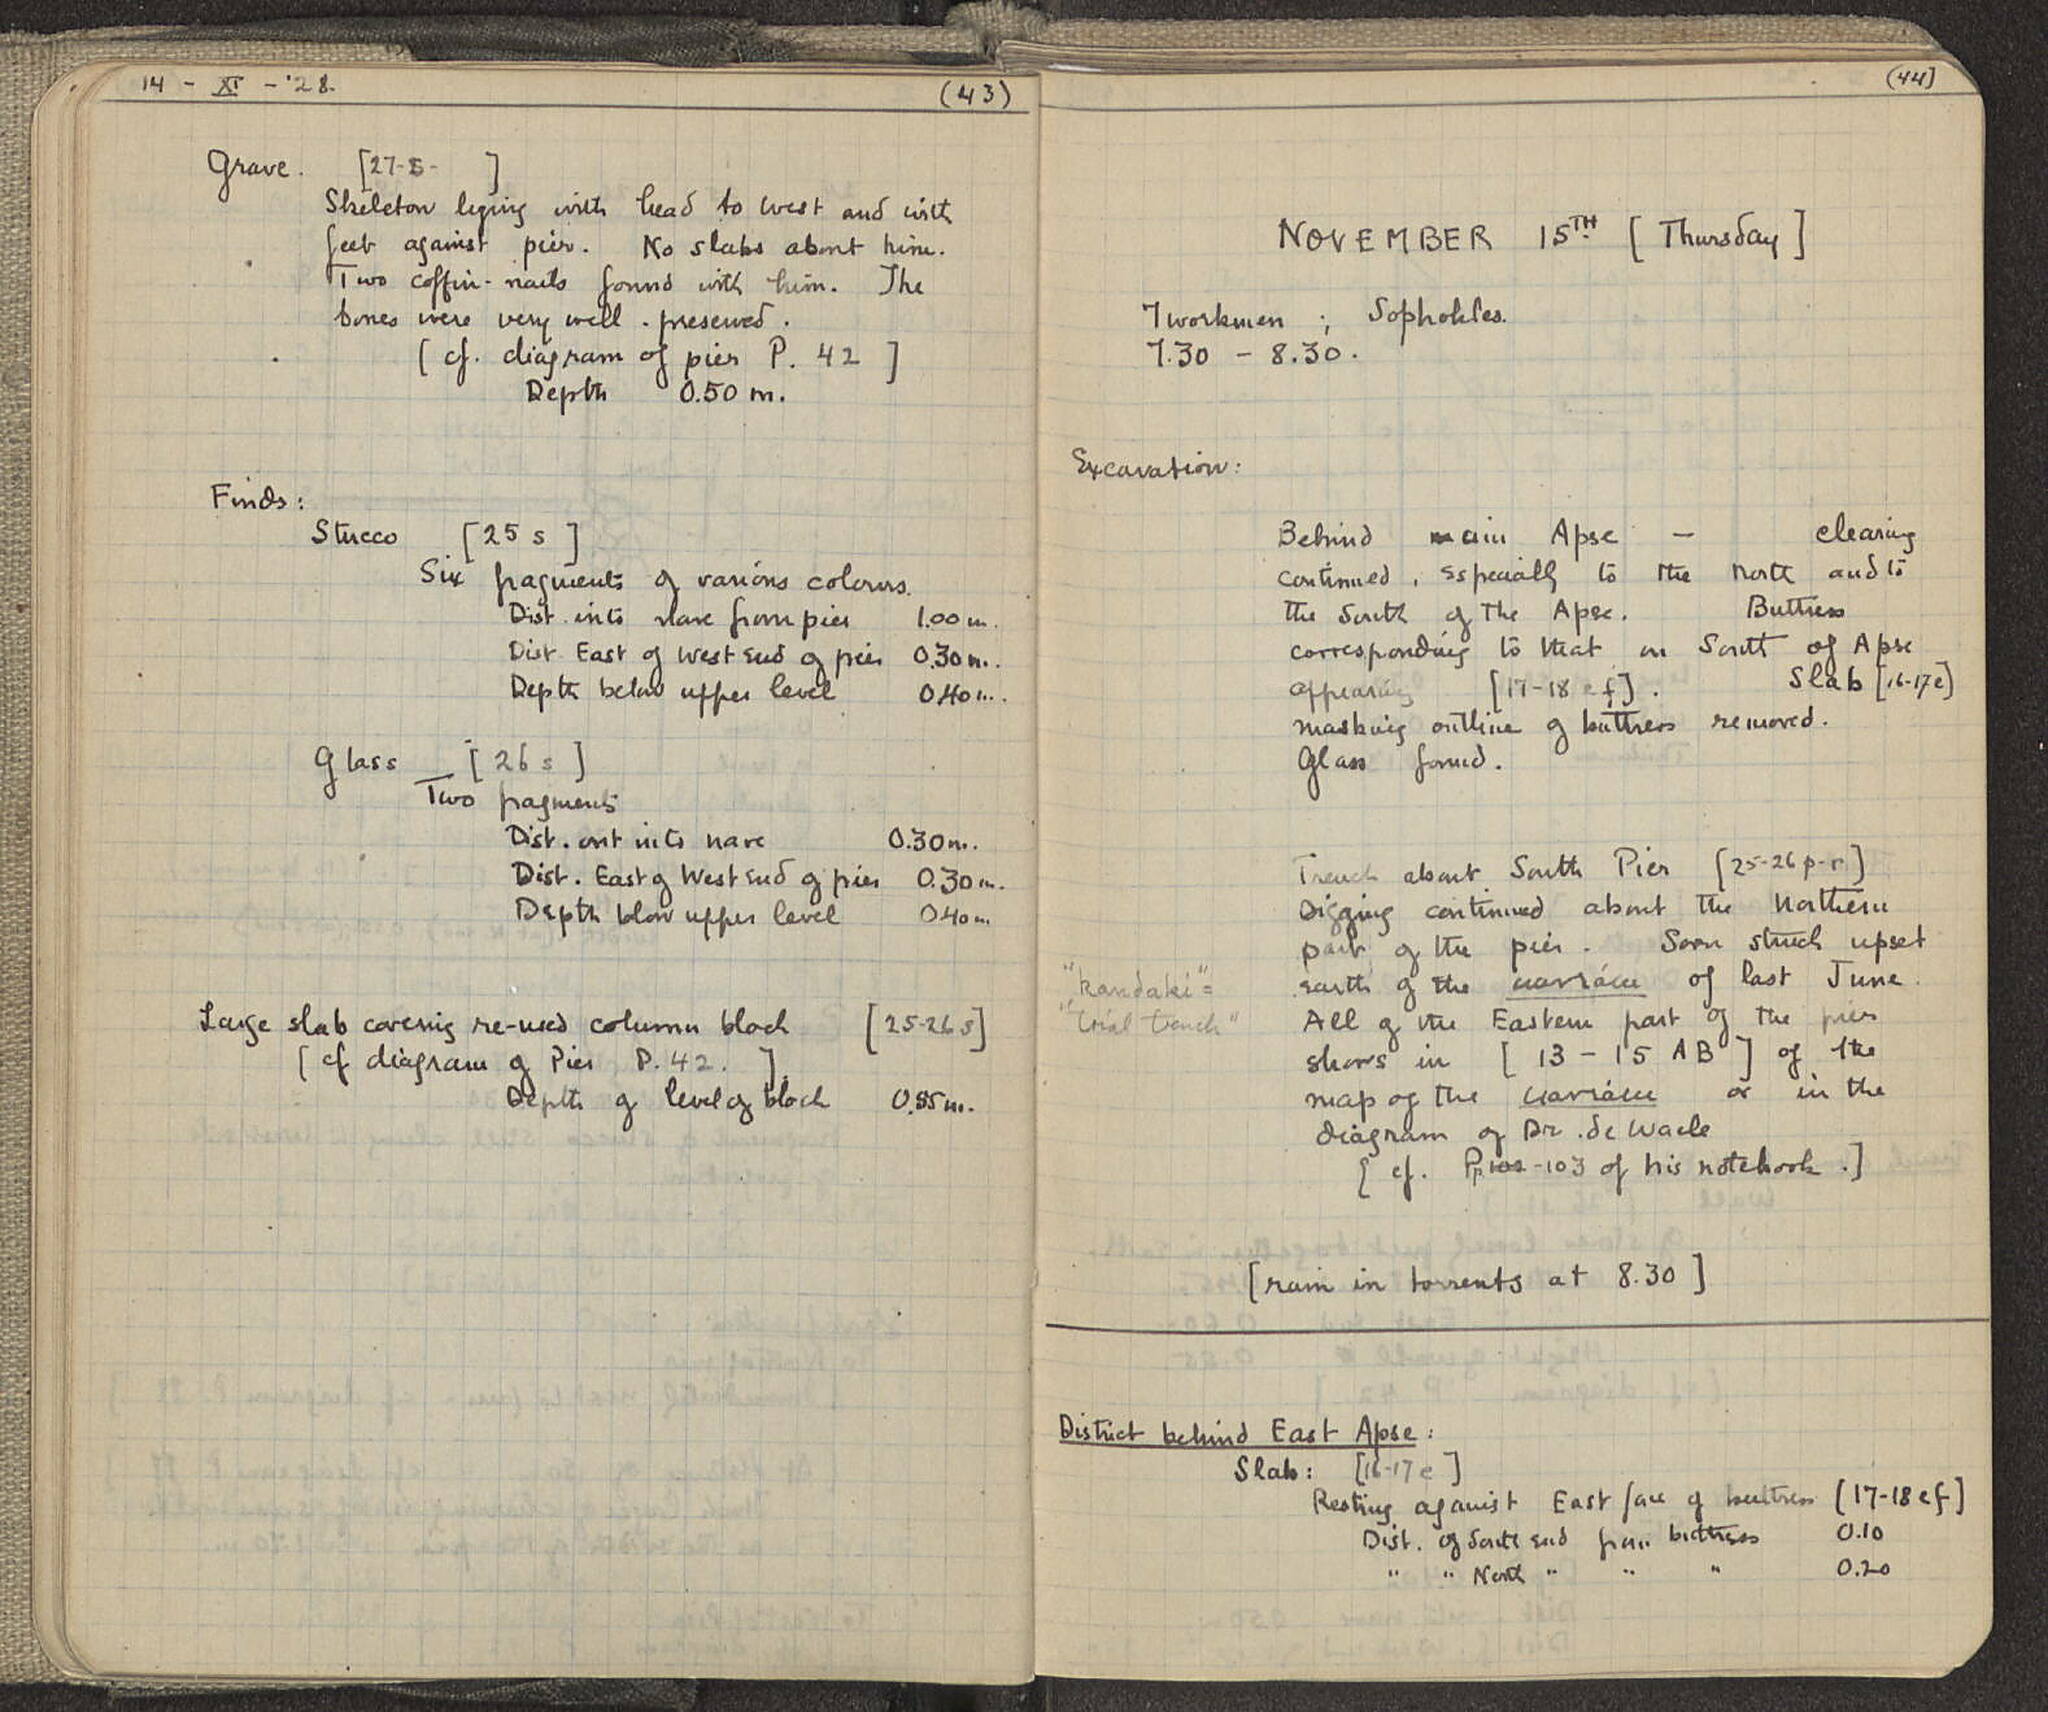 14 - XI - '28.
(43)
Grave. [27-S- ]
Skeleton lying with head to West and with
feet against pier. No slabs about him.
Two coffin-nails found with him. The
bones were very well preserved.
[cf. diagram of pier P. 42 ]
Depth 0.50 m.
Finds:
Stucco [25 s ]
Six fragments of various colours.
Dist. into nave from pier 1.00 m.
Dist East of West End of pier 0.30 m.
Depth below upper level 0.40 m.
Glass [26 s ]
Two fragments
Dist. out into nave 0.30 m.
Dist. East of West End of pier 0.30 m.
Depth blow upper level 0.40 m.
Large slab covering re-used column block [25-26 s]
[cf diagram of Pier P. 42. ]
Depth of level of block 0.55 m.
(44)
NOVEMBER 15TH [Thursday]
7 workmen ; Sophokles.
7.30 - 8.30.
Excavation:
Behind main Apse - clearing
continued, especially to the North and to
the South of the Apse. Buttress
corresponding to that on South of Apse
appearing [17-18 ef]. Slab [16-17e]
masking outline of buttress removed.
Glass found.
Trench about South Pier [25-26 p-r]
Digging continued about the Northern
part of the pier. Soon struck upset
earth of the of last June.
"kandaki" =
"trial trench"
All of the Eastern part of the pier
shows in [13 - 15 AB ] of the
map of the or in the
diagram of Dr. de Waele
[cf. Pp 102-103 of his notebook.]
[rain in torrents at 8.30 ]
District behind East Apse:
Slab: [16-17 e ]
Resting against East face of buttress [17-18 ef]
Dist. of South End from buttress 0.10
" " North " " " 0.20